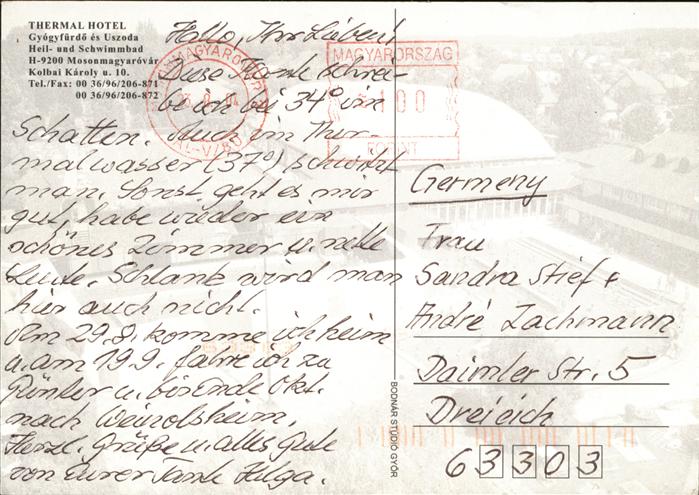 THERMAL HOTEL
Gyógyfürdő és Uszoda
Heil- und Schwimmbad
H-9200 Mosonmagyaróvár
Kolbai Károly u. 10.
Tel./Fax: 00 36/96/206-871
00 36/96/206-872
Hallo, Ihr Lieben!
Diese Karte schrei-
be ich bei 34° im
Schatten. Auch im Ther-
malwasser (37°) schwitzt
man. Sonst geht es mir
gut, habe wieder ein
schönes Zimmer u. nette
Leute. Schlank wird man
hier auch nicht.
Am 29.8. komme ich heim
u. am 19.9. fahre ich zu
Günter u. bin Ende Okt.
nach Weinolsheim.
Herzl. Grüße u. alles Gute
von Eurer Tante Helga.
MAGYARORSZÁG
100
FORINT
MAGYARORSZÁG
BODNÁR STUDIÓ GYŐR
Germeny
Frau
Sandra Stief +
André Zachmann
Daimler Str. 5
Dreieich
63303